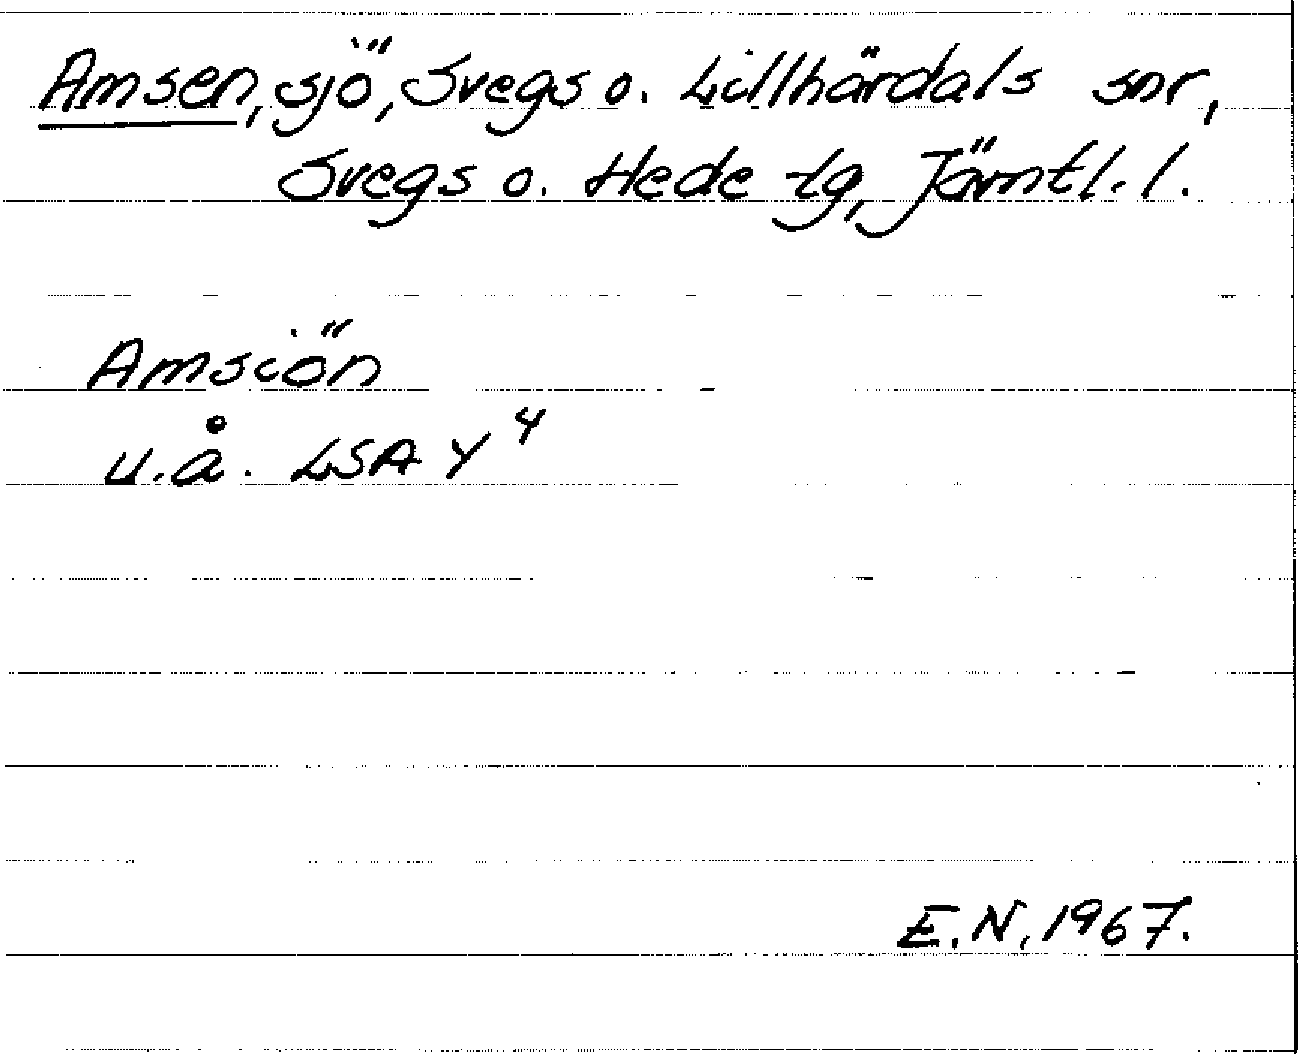 Amsen, sjö, Svegs o. Lillhärdals snr,
Svegs o. Hede tg, Jämtl. l.
Amsiön
u.å. LSA Y 4
E.N, 1967.